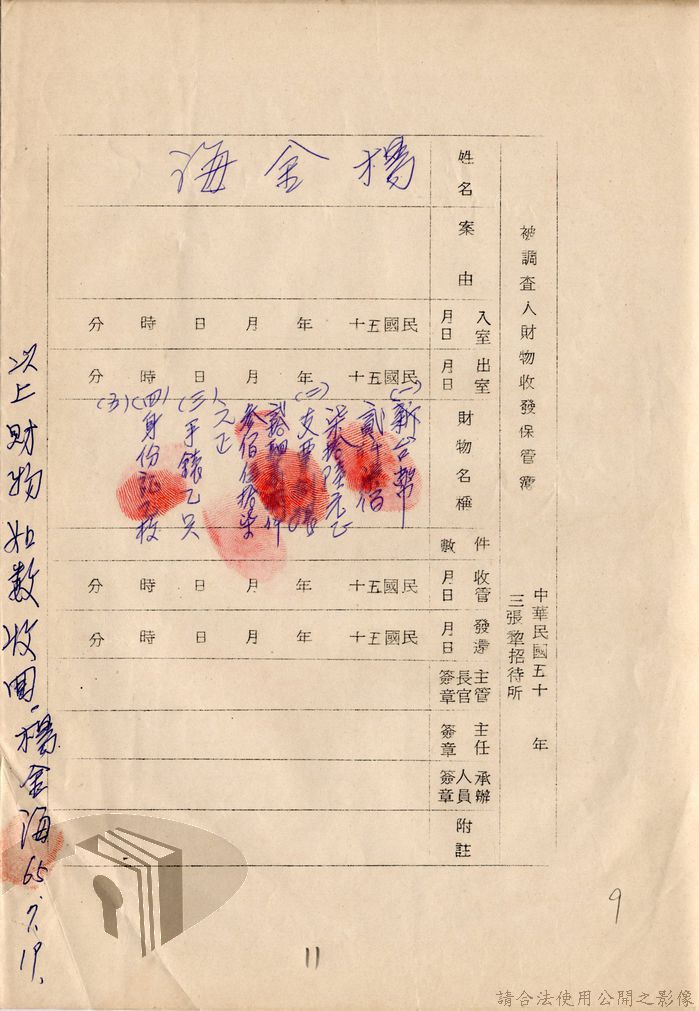 被調查人財物收發保管簿
中華民國五十　年
三張犂招待所
姓名
楊金海
案由
入室月日
民國五十　年　月　日　時　分
出室月日
民國五十　年　月　日　時　分
財物名稱
(一)新台幣
貳仟
柒拾陸元正
(二)支票
叁佰伍拾柒
元正
(三)手錶乙只
(四)身份証乙枚
(五)
件數
收管月日
民國五十　年　月　日　時　分
發還月日
民國五十　年　月　日　時　分
主管長官簽章
主任簽章
承辦人員簽章
附註
以上財物如數收回.楊金海 65.7.19.
9
11
請合法使用公開之影像